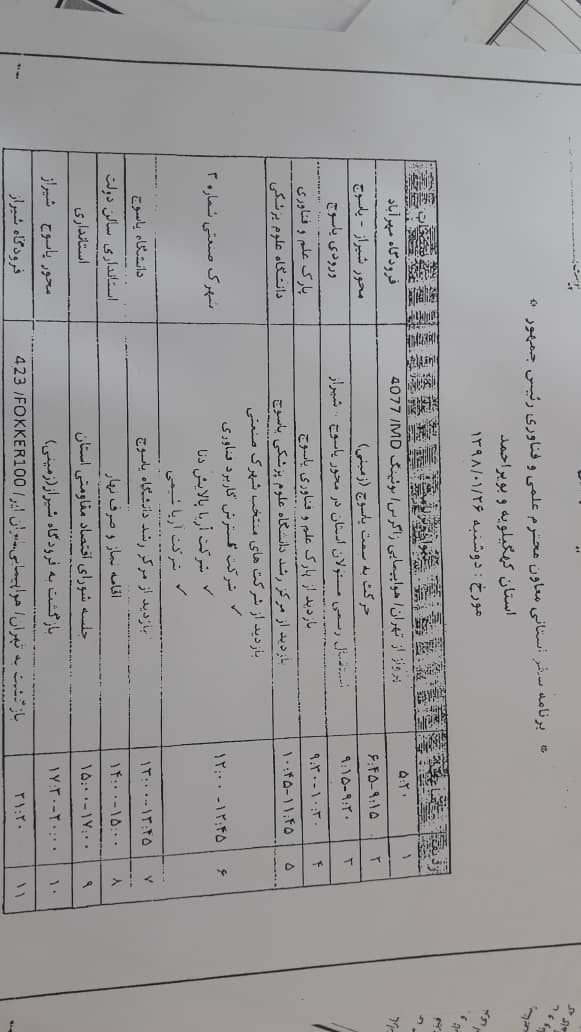 * برنامه سفر استانی معاون محترم علمی و فناوری رئیس جمهور *
استان کهگیلویه و بویراحمد
مورخ : دوشنبه ۱۳۹۸/۰۱/۲۶
۱ ۵:۲۰ پرواز از تهران/ هواپیمایی زاگرس/ بوئینگ 4077 /MD فرودگاه مهرآباد
۲ ۶:۴۵-۹:۱۵ حرکت به سمت یاسوج (زمینی) محور شیراز - یاسوج
۳ ۹:۱۵-۹:۲۰ استقبال رسمی مسئولان استان در محور یاسوج - شیراز ورودی یاسوج
۴ ۹:۳۰-۱۰:۳۰ بازدید از پارک علم و فناوری یاسوج پارک علم و فناوری
۵ ۱۰:۴۵-۱۱:۴۵ بازدید از مرکز رشد دانشگاه علوم پزشکی یاسوج دانشگاه علوم پزشکی
۶ ۱۲:۰۰-۱۲:۴۵ بازدید از شرکت های منتخب شهرک صنعتی شهرک صنعتی شماره ۲
✓ شرکت گسترش کاربرد فناوری
✓ شرکت آریا پالایش دنا
✓ شرکت آریا شیمی
۷ ۱۳:۰۰-۱۳:۴۵ بازدید از مرکز رشد دانشگاه یاسوج دانشگاه یاسوج
۸ ۱۴:۰۰-۱۵:۰۰ اقامه نماز و صرف نهار استانداری سالن دولت
۹ ۱۵:۰۰-۱۷:۰۰ جلسه شورای اقتصاد مقاومتی استان استانداری
۱۰ ۱۷:۳۰-۲۰:۰۰ بازگشت به فرودگاه شیراز(زمینی) محور یاسوج شیراز
۱۱ ۲۱:۲۰ بازگشت به تهران/ هواپیمایی ایران ایر/ 423 /FOKKER100 فرودگاه شیراز